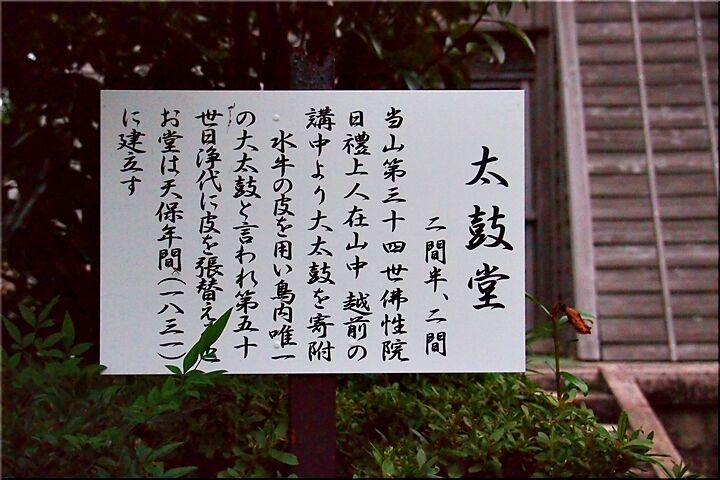 太鼓堂
二間半、二間
当山第三十四世佛性院
日禮上人在山中 越前の
講中より大太鼓を寄附
水牛の皮を用い島内唯一
の大太鼓と言われ第五十
世日浄代に皮を張替え
お堂は天保年間(一八三一)
に建立す